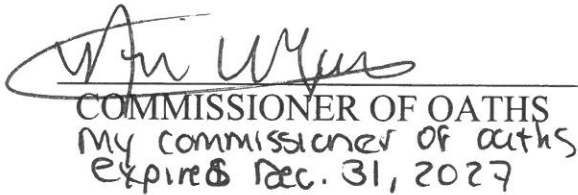 COMMISSIONER OF OATHS
My commissioner of oaths
expires Dec. 31, 2027